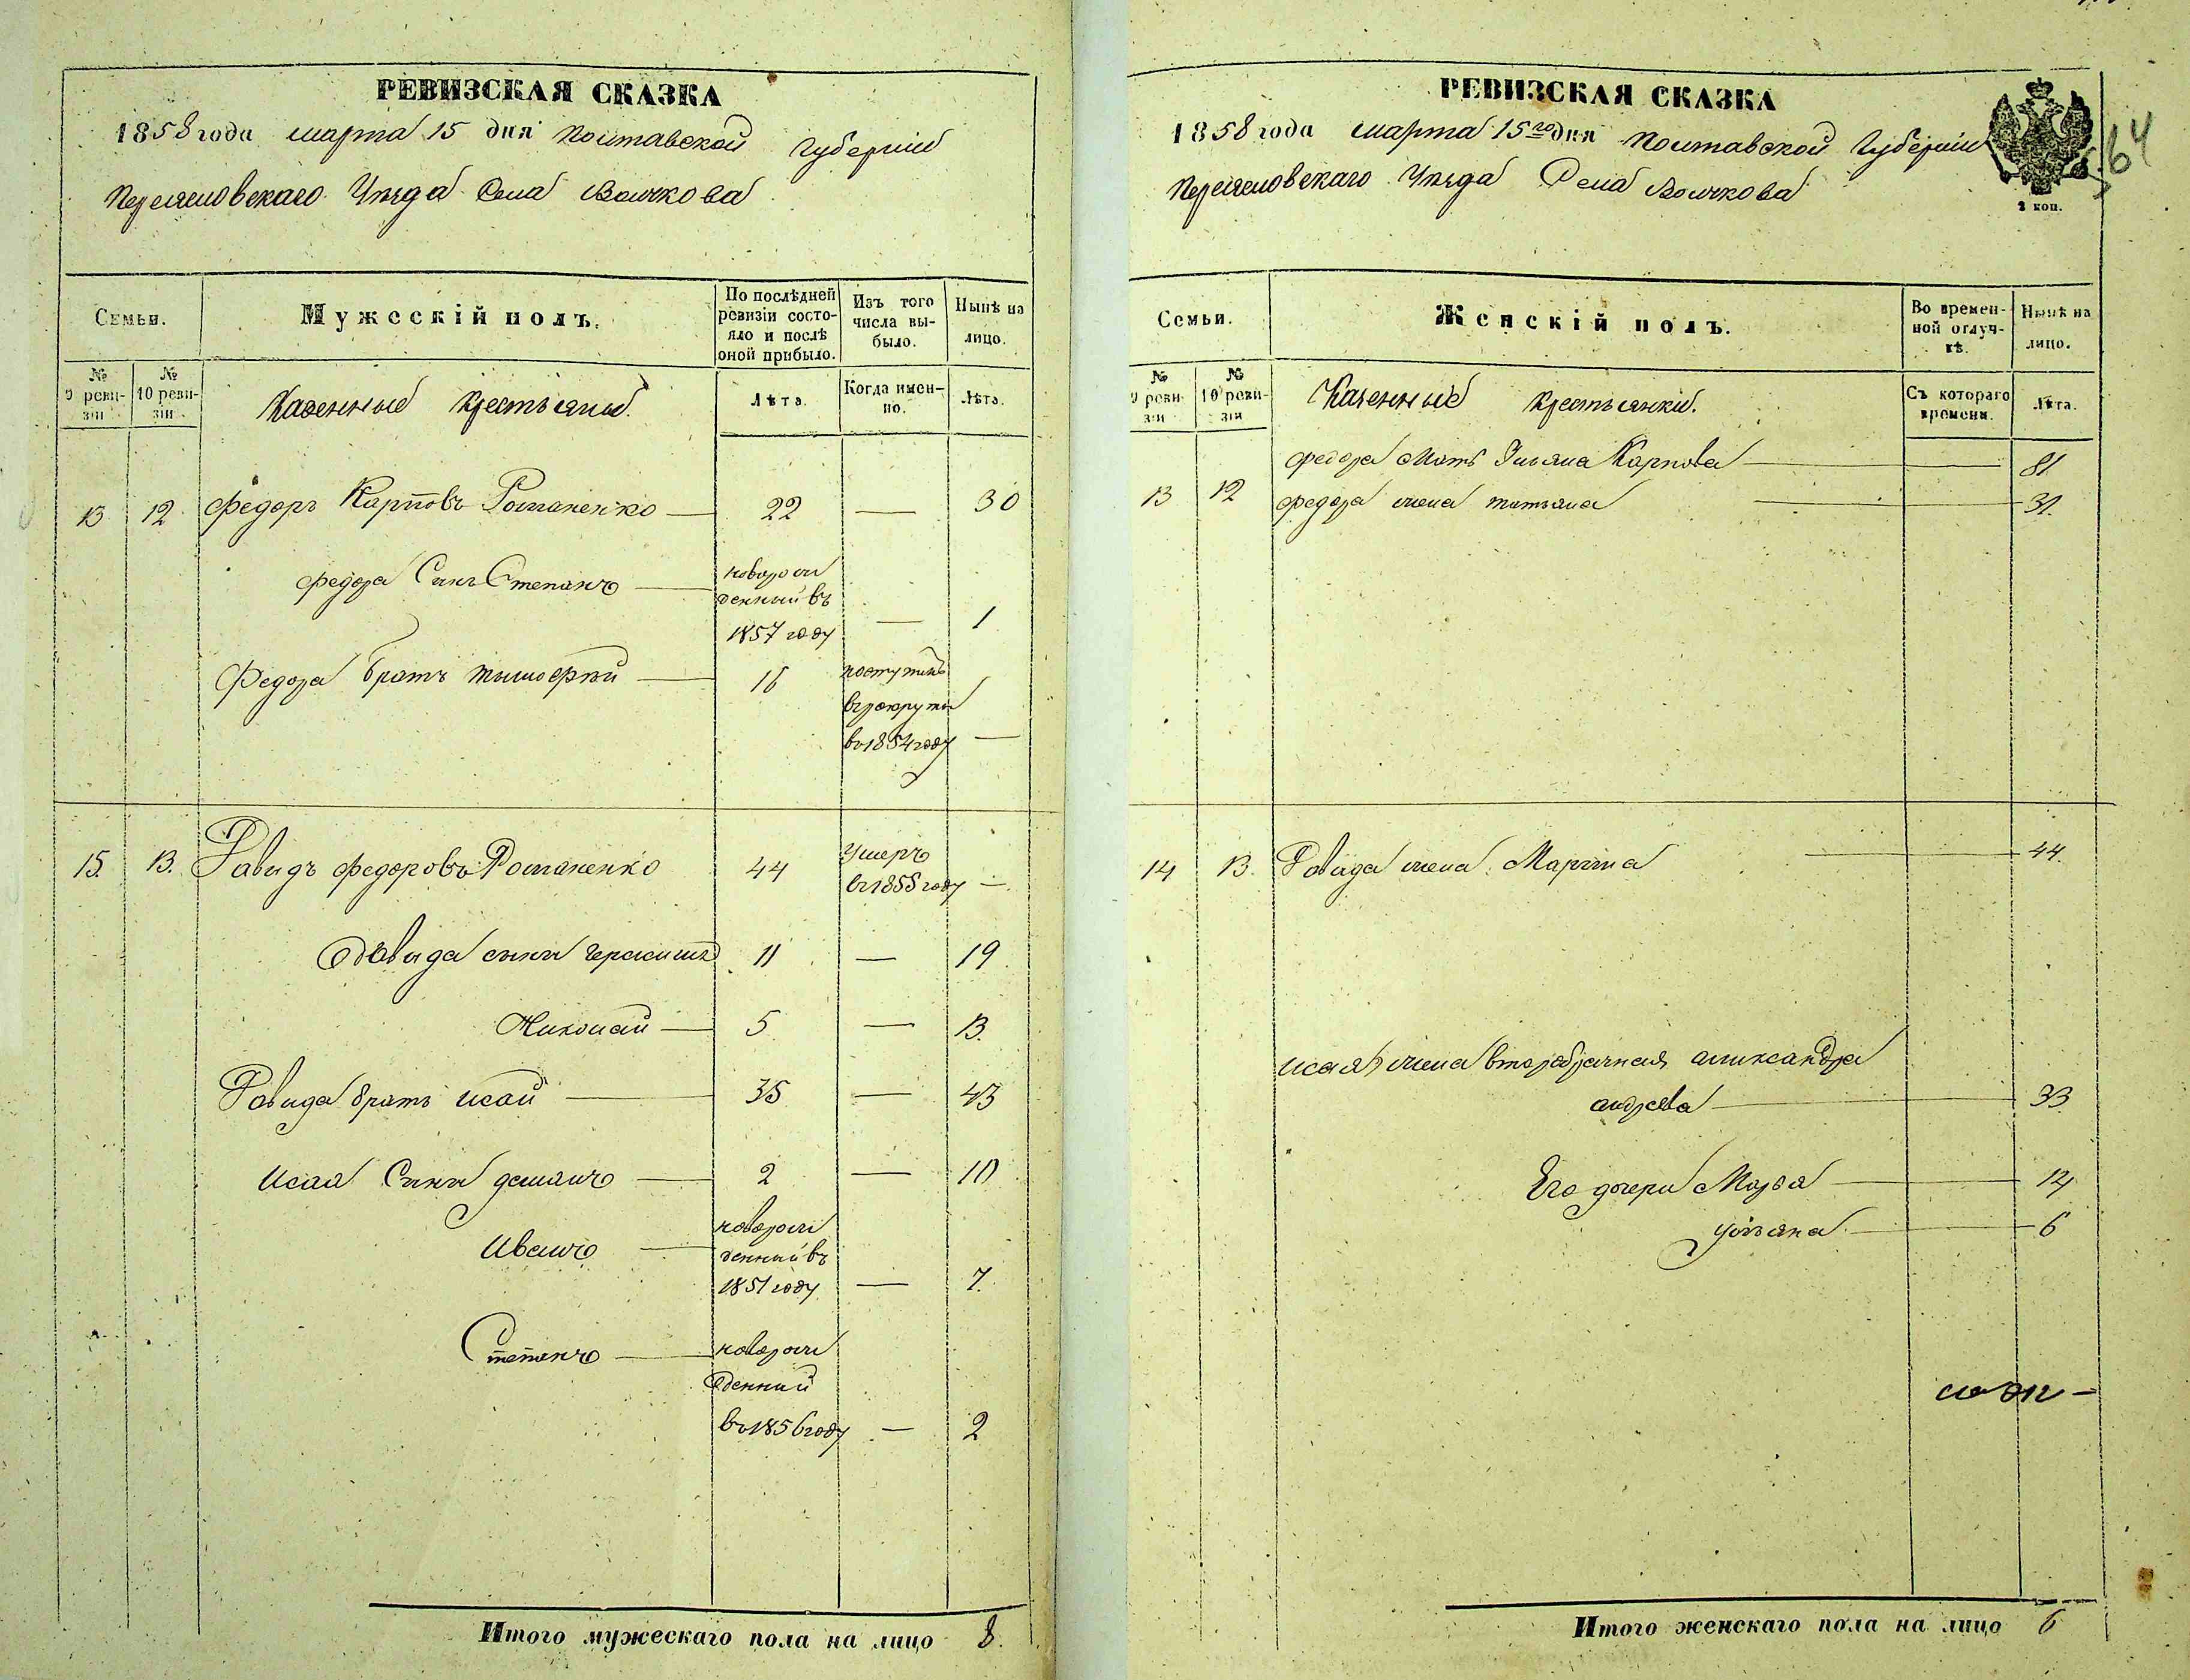 РЕВИЗСКАЯ СКАЗКА
1858 года марта 15 дня Полтавской Губерніи
Переяславскаго Уѣзда Села Волчкова
Семьи.
Мужескій полъ.
По послѣдней ревизіи состояло и послѣ оной прибыло.
Изъ того числа выбыло.
Нынѣ на лицо.
№ 9 ревизіи
№ 10 ревизіи
Казенные крестьяны.
Лѣта.
Когда именно.
Лѣта.
13 12 Федоръ Карповъ Романенко 22 — 30
Федора Сынъ Степанъ новорожденный въ 1857 году — 1
Федора братъ Тымофѣй 16 поступилъ въ рекруты въ 1854 году —
15. 13. Давидъ Федоровъ Романенко 44 умеръ въ 1855 году —
Давида сыны Герасимъ 11 — 19
Николай 5 — 13.
Давида братъ Исай 35 — 43
Исая Сыны Демянъ 2 — 10
Иванъ новорожденный въ 1851 году — 7.
Степанъ новорожденный въ 1856 году — 2
Итого мужескаго пола на лицо 8.
РЕВИЗСКАЯ СКАЗКА
1858 года марта 15го дня Полтавской Губерніи
Переяславскаго Уѣзда Села Волчкова
64
2 коп.
Семьи.
Женскій полъ.
Во временной отлучкѣ.
Нынѣ на лицо.
№ 9 ревизіи
№ 10 ревизіи
Казенные крестьянки.
Съ котораго времени.
Лѣта.
Федора Мать Ульяна Карпова — 81
13 12 Федора жена Татьяна — 31.
14 13 Давида жена Марина — 44.
Исая жена второбрачная Александра
Андреева — 33
Его дочери Марѳа — 14
Ульяна — 6
Итого женскаго пола на лицо 6